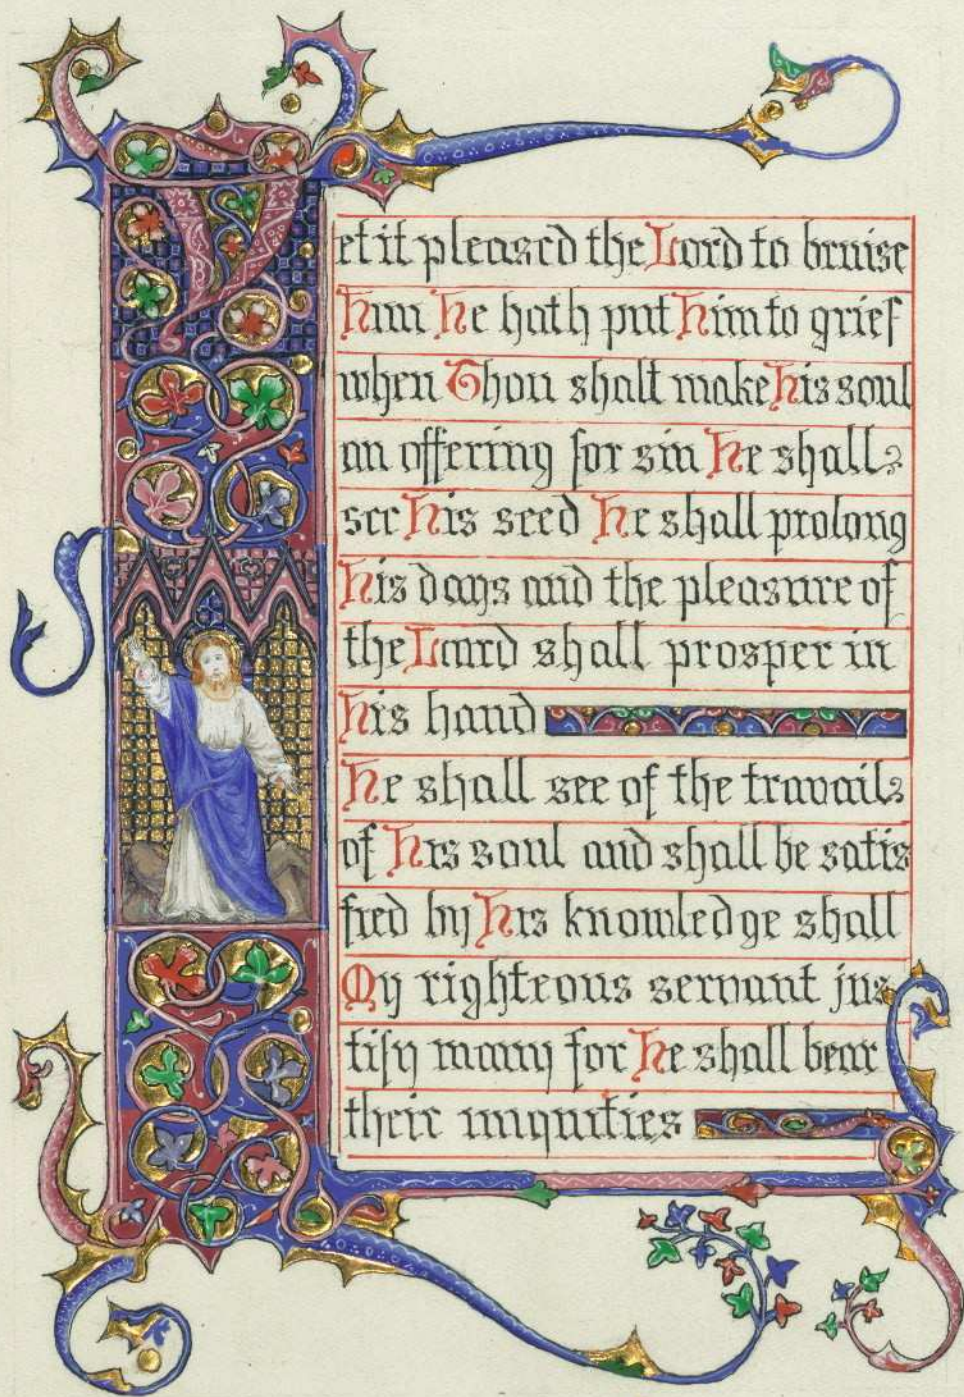 Yet it pleased the Lord to bruise
Him He hath put Him to grief
when Thou shalt make His soul
an offering for sin He shall
see His seed He shall prolong
His days and the pleasure of
the Lord shall prosper in
His hand
He shall see of the travail
of His soul and shall be satis
fied by His knowledge shall
My righteous servant jus
tify many for He shall bear
their iniquities